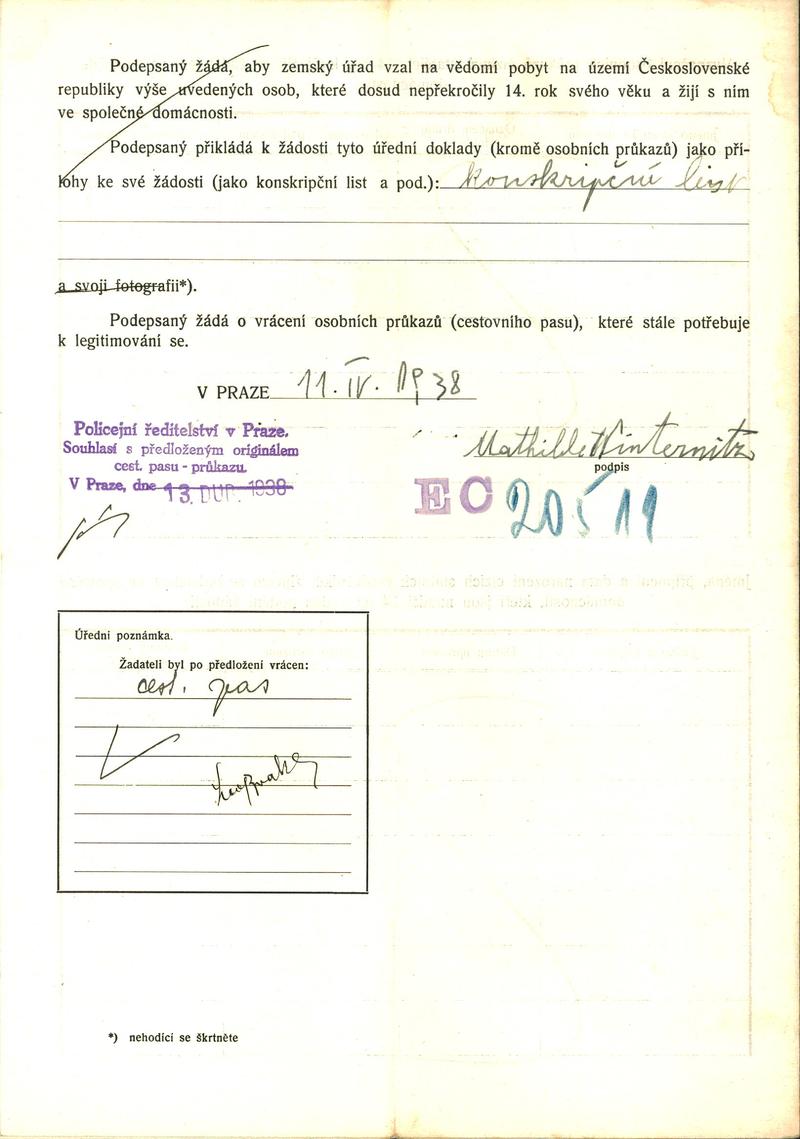 Podepsaný žádá, aby zemský úřad vzal na vědomí pobyt na území Československé
republiky výše uvedených osob, které dosud nepřekročily 14. rok svého věku a žijí s ním
ve společné domácnosti.
Podepsaný přikládá k žádosti tyto úřední doklady (kromě osobních průkazů) jako pří-
lohy ke své žádosti (jako konskripční list a pod.): konskripční list
a svoji fotografii*).
Podepsaný žádá o vrácení osobních průkazů (cestovního pasu), které stále potřebuje
k legitimování se.
V PRAZE 11. IV. 1938
Policejní ředitelství v Praze.
Souhlasí s předloženým originálem
cest. pasu - průkazu.
V Praze, dne 13. DUB. 1938
Mathilde Winternitz
podpis
EC 20519
Úřední poznámka.
Žadateli byl po předložení vrácen:
cest. pas
*) nehodící se škrtněte